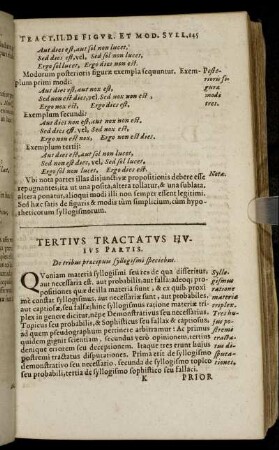 TRACT. II. DE FIGVR. ET MOD. SYLL. 145
Aut dies est, aut sol non lucet,
Sed dies est, vel, Sed sol non lucet,
Ergo sol lucet, Ergo dies non est.
Modorum posterioris figuræ exempla sequuntur. Exem-
plum primi modi:
Aut dies est, aut nox est,
Sed non est dies, vel, Sed nox non est,
Ergo nox est, Ergo dies est.
Exemplum secundi:
Aut dies non est, aut nox non est,
Sed dies est, vel, Sed nox est,
Ergo nox non est, Ergo non est dies.
Exemplum tertij:
Aut dies est, aut sol non lucet,
Sed non est dies, vel, Sed sol lucet,
Ergo sol non lucet, Ergo dies est.
Posterioris figuræ modi tres.
Vbi nota partes illas disjunctiuæ propositionis debere esse
repugnantes, ita ut una posita, altera tollatur, & una sublata,
altera ponatur, alioqui modi illi essent non semper legitimi.
Sed hæc satis de figuris & modis tùm simplicium, cùm hypo-
theticorum syllogismorum.
Nota.
TERTIVS TRACTATVS HV-
IVS PARTIS.
De tribus præcipuis syllogismi speciebus.
QVoniam materia syllogismi seu res de qua disseritur,
aut necessaria est, aut probabilis, aut falsa: adeoq; pro-
positiones quæ de illa materia sunt, & ex quib. proxi-
mè constat syllogismus, aut necessariæ sunt, aut probabiles,
aut falsæ, seu captiosæ; hinc syllogismus ratione materiæ tri-
plex in genere dicitur, nẽpe Demonstrativus seu necessarius,
Topicus seu probabilis, & Sophisticus seu fallax & captiosus,
ad quem pseudographum pertinere arbitramur: Ac primus
quidem gignit scientiam, secundus verò opinionem, tertius
deniq; errorem seu deceptionem. Itaque tres erunt huius
postremi tractatus disputationes. Prima erit de syllogismo
demonstrativo seu necessario, secunda de syllogismo topico
seu probabili, tertia de syllogismo sophistico seu fallaci.
Syllogismus ratione materiæ triplex.
Tres huius postremi tractatus disputationes.
K PRIOR